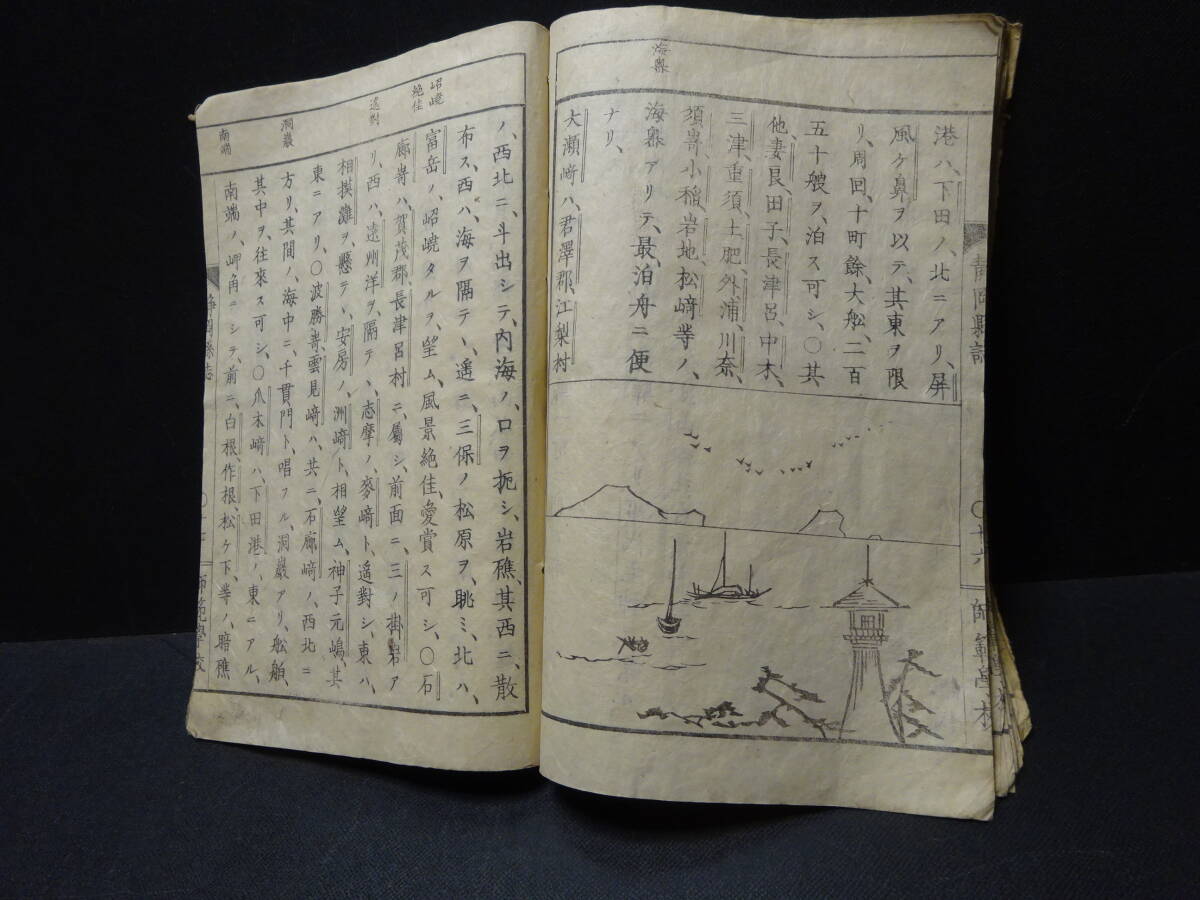 海嶴
港ハ、下田ノ、北ニアリ、屏
風ケ鼻ヲ以テ、其東ヲ限
リ、周回十町餘、大船、二百
五十艘ヲ、泊ス可シ、〇其
他、妻良、田子、長津呂、中木、
三津、重須、土肥、外浦、川奈、
須嵜、小稲、岩地、松﨑等ノ、
海嶴アリテ、最、泊舟ニ便
ナリ、
大瀬﨑ハ、君澤郡、江梨村
静岡縣誌
〇十六
師範學校
岹嶢
絶佳
遙對
洞巖
南端
ノ、西北ニ、斗出シテ、内海ノ、口ヲ扼シ、岩礁、其西ニ、散
布ス、西ハ、海ヲ隔テヽ、遥ニ、三保ノ松原ヲ、眺ミ、北ハ、
富岳ノ、岹嶢タルヲ、望ム、風景絶佳、愛賞ス可シ、〇石
廊嵜ハ、賀茂郡、長津呂村ニ、屬シ、前面ニ、三ノ掛岩ア
リ、西ハ、遠州洋ヲ、隔テヽ、志摩ノ、麥﨑ト、遙對シ、東ハ、
相摸灘ヲ、懸テヽ、安房ノ、洲﨑ト、相望ム、神子元嶋、其
東ニアリ、〇波勝嵜、雲見﨑ハ、共ニ、石廊﨑ノ、西北ニ
方リ、其間ノ、海中ニ、千貫門ト、唱フル、洞巖アリ、船舶、
其中ヲ、往來ス可シ、〇爪木﨑ハ、下田港ノ、東ニアル、
南端ノ、岬角ニシテ、前ニ、白根、作根、松ケ下、等ノ、暗礁
静岡縣誌
師範學校